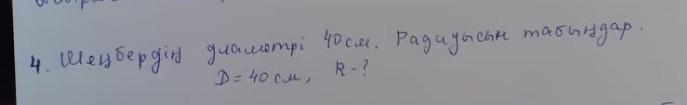 4. Шеңбердің диаметрі 40 см. Радиусын табыңдар.
D = 40 см, R - ?